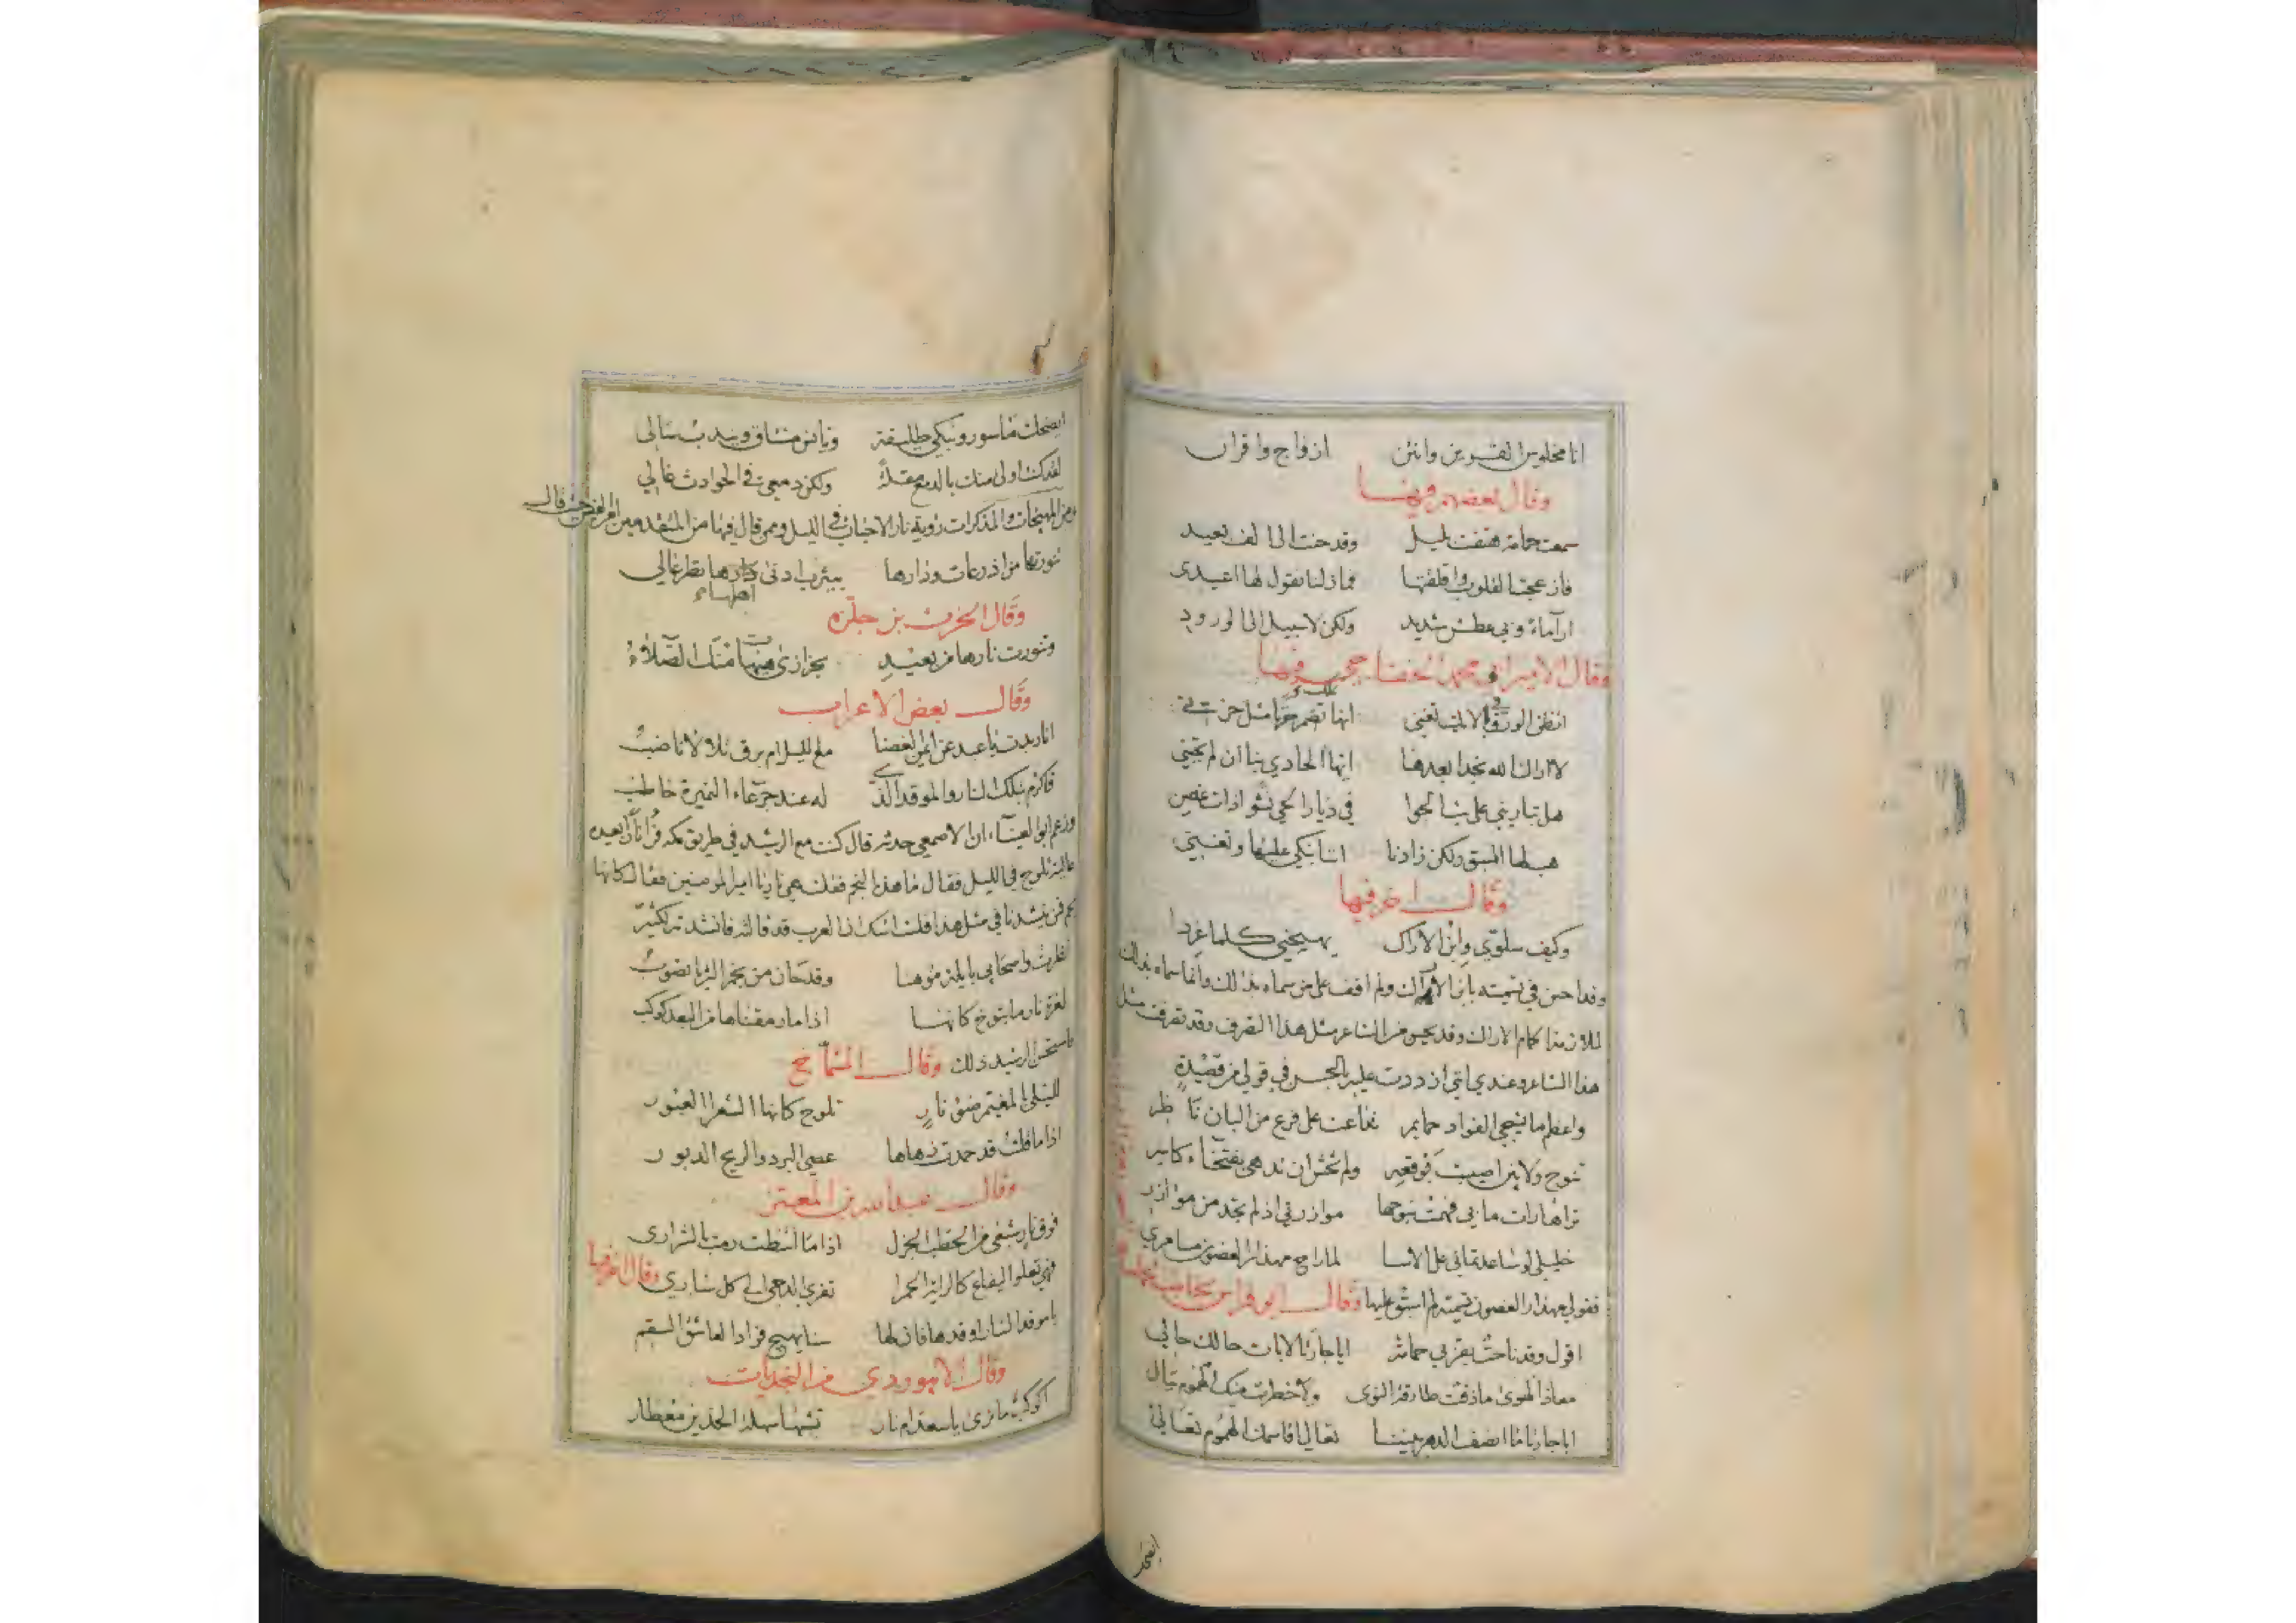 انا مخلوس القرين وانتن ازواج واقران
وقال بعضهم فيها
سمعت حمامة هتفت بليل وقد حنت الى الف بعيد
فازعجت القلوب واقلقتها فما زلنا نقول لها اعيدى
ارى ماء وبي عطش شديد ولكن لا سبيل الى الورود
وقال الامير ابو محمد الخفاجي فيها
اتظن الورق في الايك تغني انها تضمر حزنا مثل حزني
لا اراك الله نجدا بعدها ايها الحادي بنا ان لم تجبني
هل تباريني على بث الجوا في ديار الحي نشوا ذات غصن
هب لها السبق ولكن زادنا اننا نبكي عليها وتغني
وقال اخر فيها
وكيف سلوّي وابن الاراك يهيجني كلما غردا
وقد احسن في تسميته بابن الاراك ولم اقف على من سماه بذلك وانما سماه بذلك
لملازمته اكام الاراك وقد يحسن من الشاعر مثل هذا التصرف وقد تصرفت مثل
هذا الشاعر وعندي اني ازددت عليه بالحسن في قولي من قصيدة
واعظم ما يشجي الفواد حمايم تداعت على فرع من البان ناظر
تنوح ولا بين اصيبت فوقعه ولم تخش ان تدهى بفتخاء كاسر
تراها رات ما بي فهمت بنوحها موازرتي اذ لم تجد من موازر
خليلي لو ساعدتماني على الاسا لما راح مهذار الغصون مسامري
فقولي مهذار الغصون تسمية لم اسبق عليها وقال ابو فراس يخاطب حمامة
اقول وقد ناحت بقربي حمامة ايا جارتا لا بات حالك حالي
معاذ الهوى ما ذقت طارقة النوى ولا خطرت منك الهموم ببال
ايا جارتا ما انصف الدهر بيننا تعالي اقاسمك الهموم تعالي
ايضحك
ايضحك ماسور وتبكي طليقة ويانس مشتاق ويندب سالى
لقد كنت اولى منك بالدمع مقلة ولكن دمعي في الحوادث غالي
ومن المهيجات والمذكرات رؤية نار الاحباب في الليل وممن قال فيها من المتقدمين امرؤ القيس حيث قال
تنورتها من اذرعات ودارها بيثرب ادنى دارها نظر عالي
وقال الحرث بن حلزه
وتنورت نارها من بعيد بخزازى هيهات منك الصلاء
وقال بعض الاعراب
انار بدت يا عبد عن ايمن الغضا مع الليل ام برق تلالا ناضب
فاكرم بتلك النار والموقد الذي له عند جرعاء النميرة خاطب
وزعم ابو العيناء ان الاصمعي حدثه قال كنت مع الرشيد في طريق مكه فرأى نارا بعيده
عالية تلوح في الليل فقال ما هذا النجم فقلت هي نار يا امير المومنين فقال كانها
نجم فمن ينشدنا في مثل هذا قلت انشدك انا العرب قد قالته فانشدته لكثير
نظرت واصحابي بايلة موهنا وقد حان من نجم الثريا تصوب
لعزة نار ما تبوخ كانها اذا ما رمقناها من البعد كوكب
فاستحسن الرشيد ذلك وقال الشماخ
لليلى بالمغيتم ضوء نار تلوح كانها الشعرا العبور
اذا ما قلت قد خمدت زهاها عصي البرد والريح الدبور
وقال عبد الله بن المعتز
فوق نار شبعى من الحطب الجزل اذا ما التظت رمت بالشرارى
فهي تعلو اليفاع كالراية الحمرا تفري الدجى الى كل سارى وقال اخر فيها
يا موقد النار اوقدها فان لها سنا يهيج فؤاد العاشق السقم
وقال الابيوردي من النجديات
اكوكب ما نرى يا سعد ام نار تشبها سهلة الخدين معطار